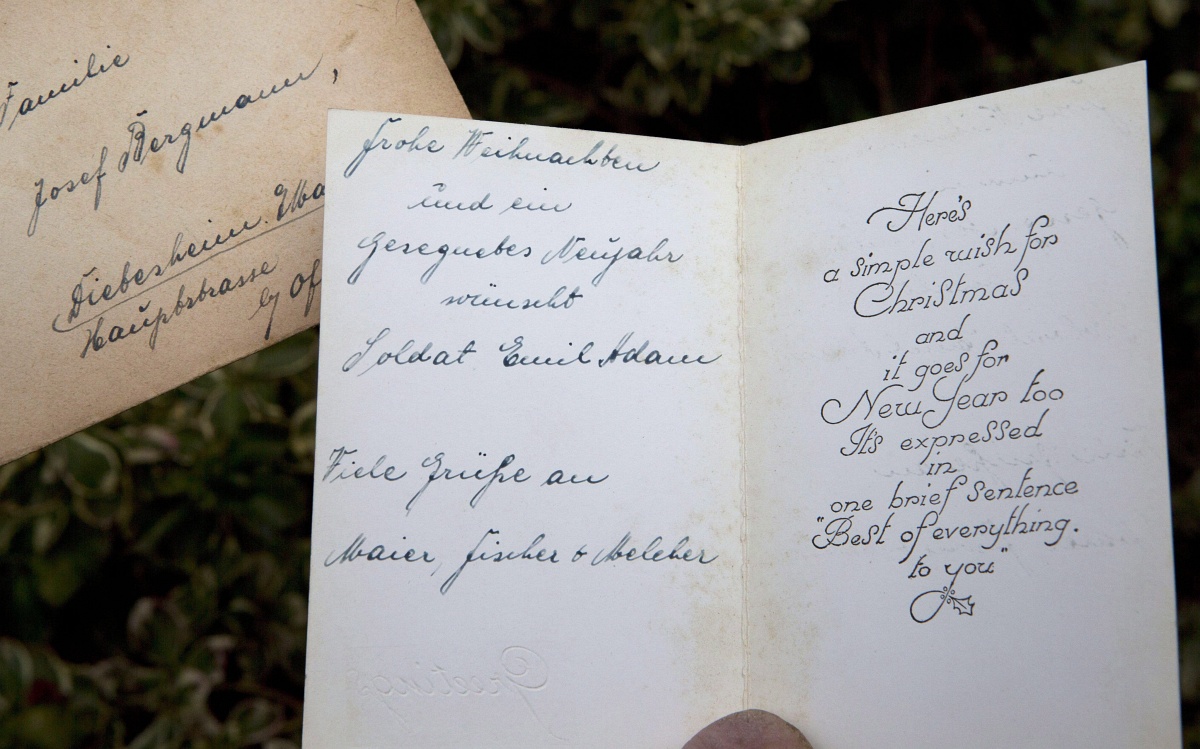 Familie
Josef Bergmann,
Diebesheim.
Hauptstrasse
Frohe Weihnachten
und ein
Gesegnetes Neujahr
wünscht
Soldat Emil Adam
Viele Grüße an
Maier, Fischer & Melcher
Greetings
Here's
a simple wish for
Christmas
and
it goes for
New Year too
It's expressed
in
one brief sentence
"Best of everything.
to you"